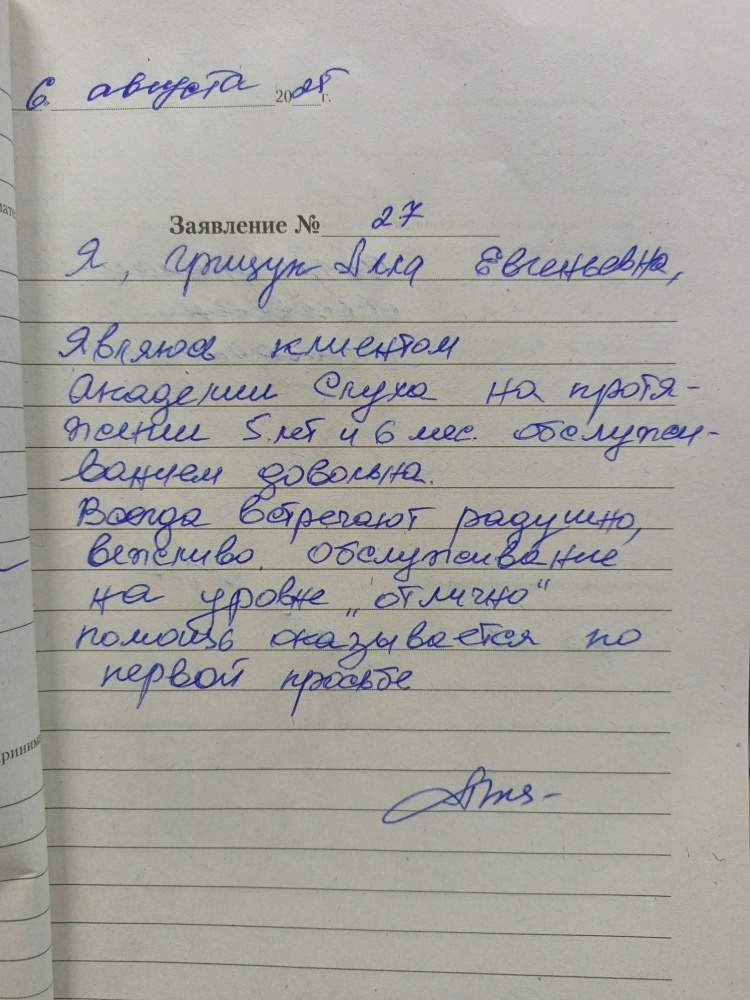 6 августа 2025 г.
Заявление № 27
Я, Грищук Алла Евгеньевна,
Являюсь клиентом
Академии Слуха на протя-
жении 5 лет и 6 мес. обслужи-
ванием довольна.
Всегда встречают радушно,
вежливо. Обслуживание
на уровне „отлично“
помощь оказывается по
первой просьбе